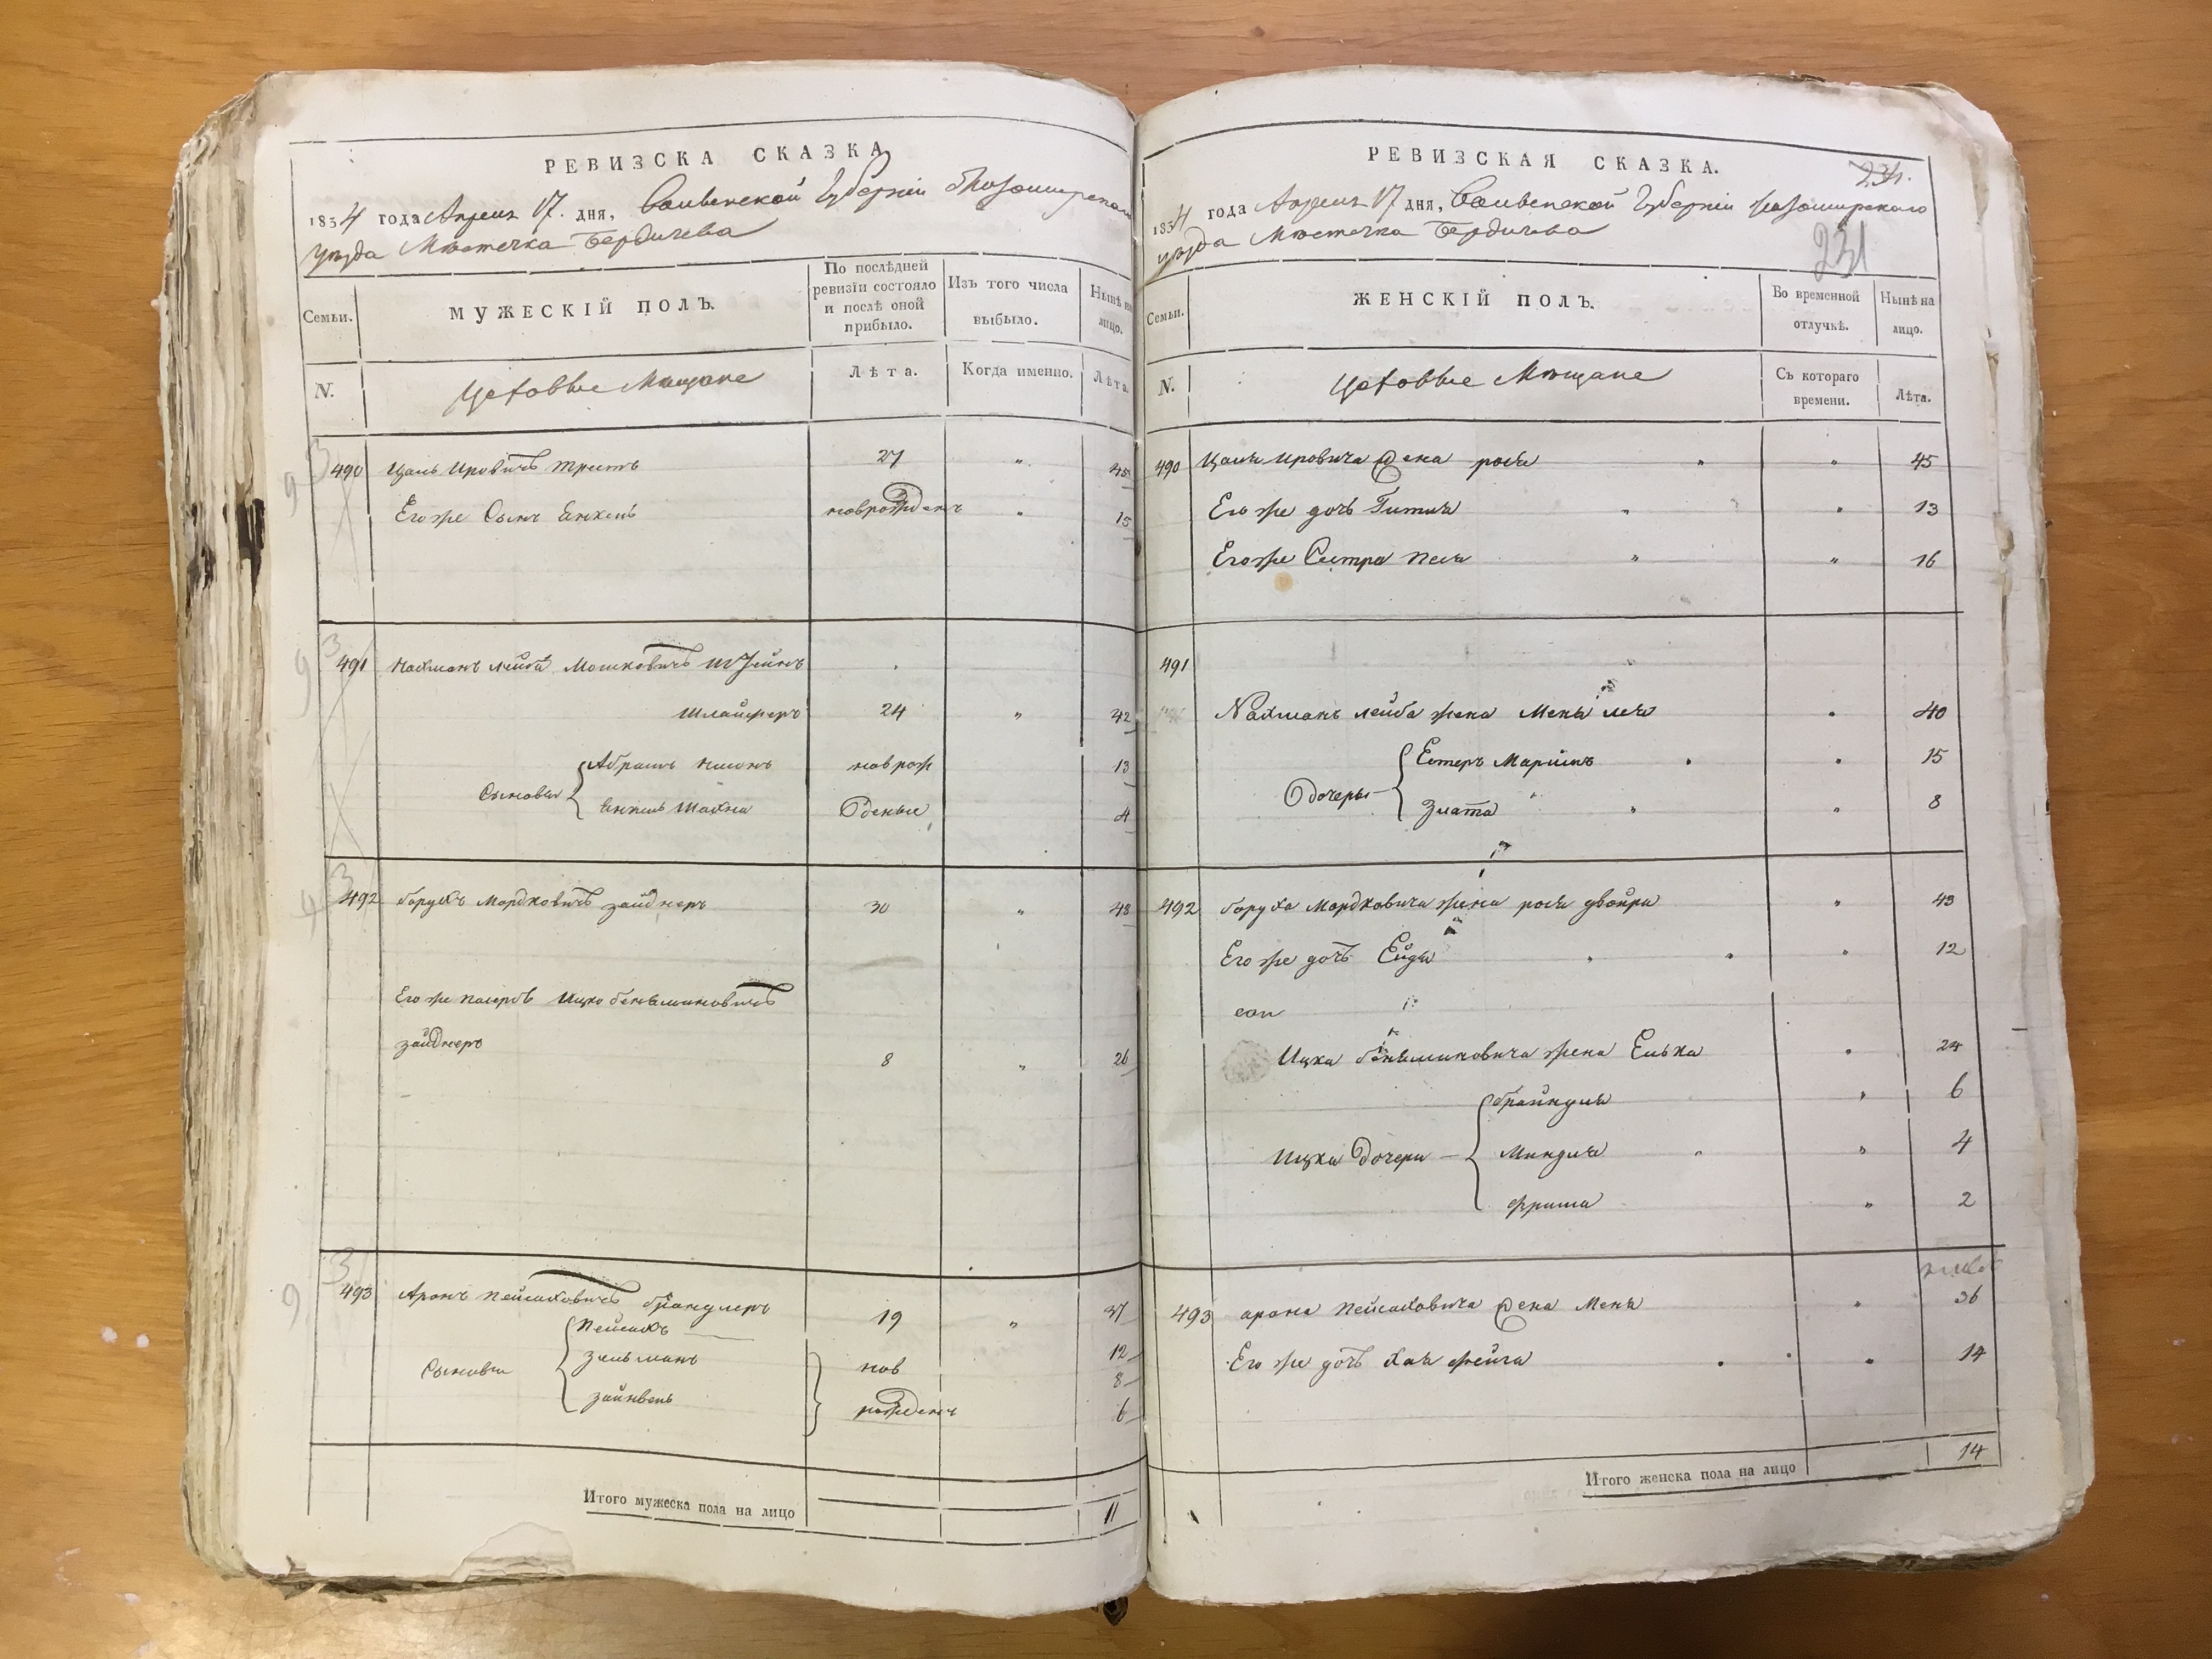 РЕВИЗСКА СКАЗКА
1834 года Апреля 17. дня, Волынской Губернии Житомирского
уезда Местечка Бердичева
Семьи.
МУЖЕСКІЙ ПОЛЪ.
По послѣдней ревизіи состояло и послѣ оной прибыло.
Изъ того числа выбыло.
Нынѣ на лицо.
N.
Цеховые Мещане
Лѣта.
Когда именно.
Лѣта.
490 Цаль Ировичъ 27 " 45
Его же Сынъ Янкель новорожденъ " 15
491 Нахманъ Лейба Мошковичъ
Шлайферъ 24 " 42
Сыновья { Абрамъ новорож 13
Янкель Шахна деные 4
492 Борухъ Мордковичъ Зайднеръ 30 " 48
Его же Ицко Беньяминовичъ
Зайднеръ 8 " 26
493 Аронъ Пейсаховичъ 19 " 37
Сыновья { Пейсахъ 12
Зельманъ нов 8
Зайнвель рожденъ 6
Итого мужеска пола на лицо 11
РЕВИЗСКАЯ СКАЗКА.
231
1834 года Апреля 17 дня, Волынской Губернии Житомирского
уезда Местечка Бердичева
231
Семьи.
ЖЕНСКІЙ ПОЛЪ.
Во временной отлучкѣ.
Нынѣ на лицо.
N.
Цеховые Мещане
Съ котораго времени.
Лѣта.
490 Цаля Ировича жена Рося " " 45
Его же дочь Гитля " " 13
Его же Сестра Песя " " 16
491
Нахманъ Лейба жена " 40
Дочеры { Естеръ " 15
Злата " " 8
492 Боруха Мордковича жена Рося Двойра " 43
Его же дочь Ейдя " 12
Ицка Беньяминовича жена Елька " 24
Ицка Дочери { Брайндля " 6
Миндля " 4
Фрима " 2
493 Арона Пейсаховича жена Меня " 36
Его же дочь Хая Фейга " 14
Итого женска пола на лицо 14